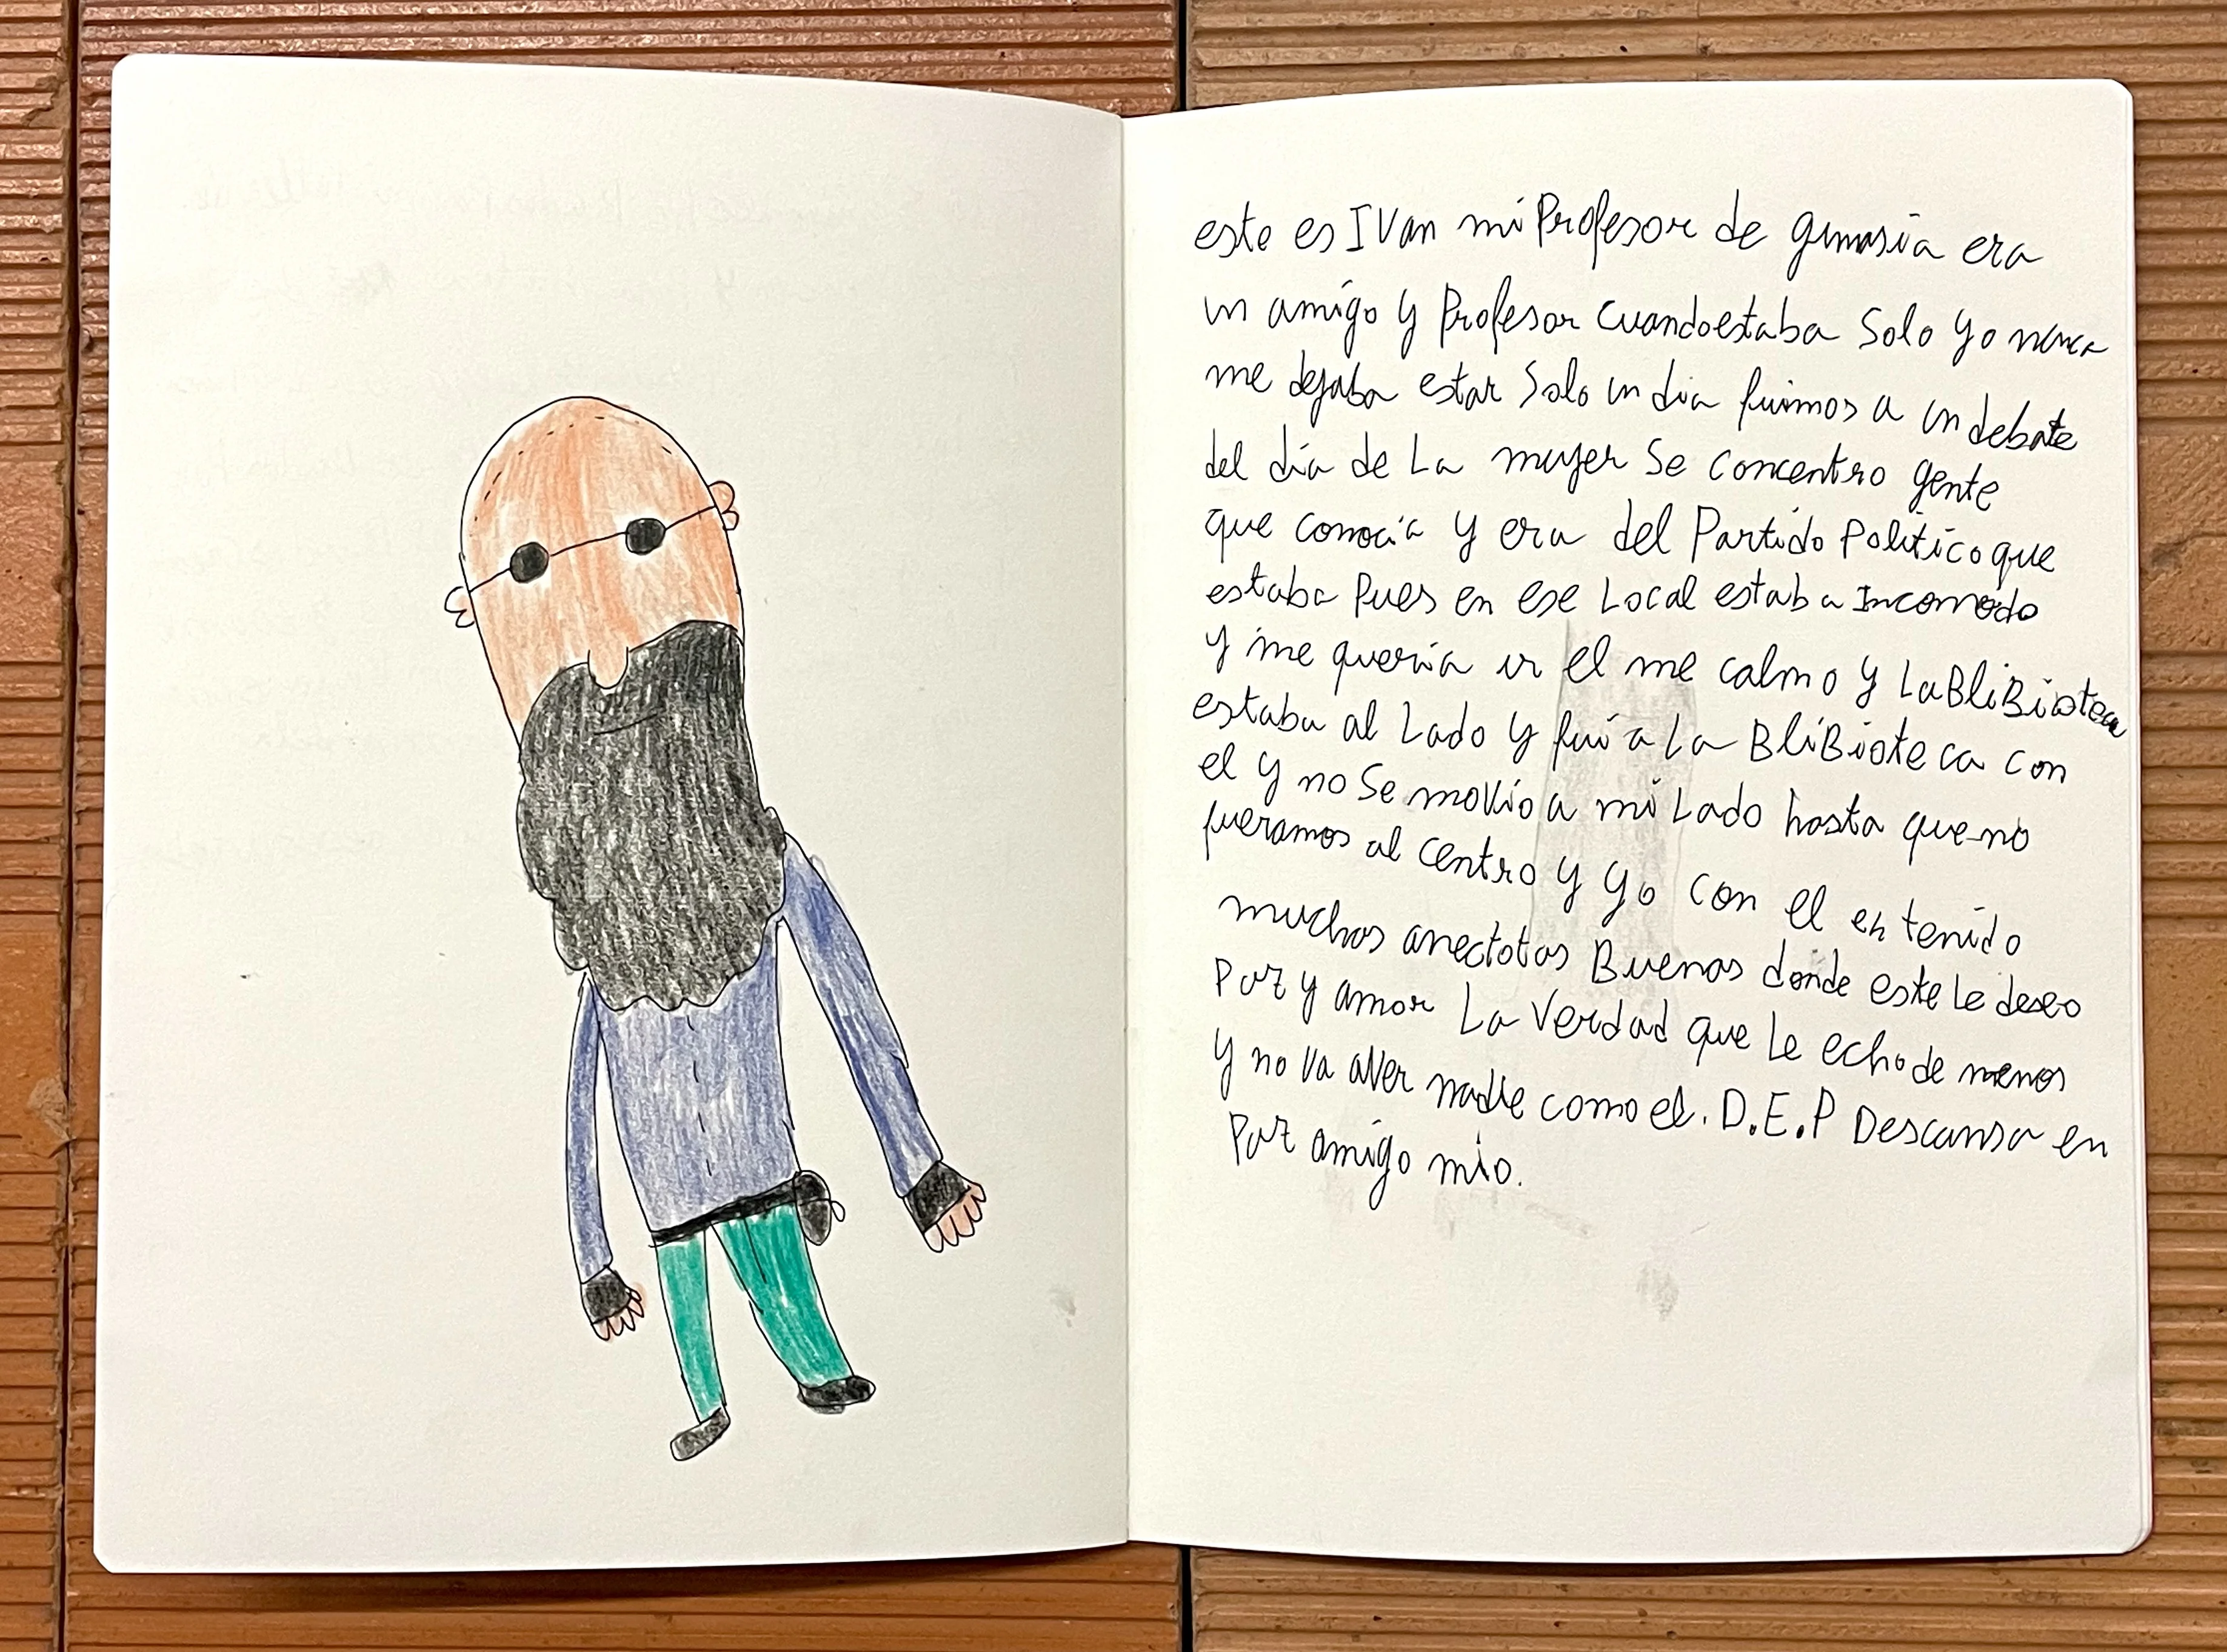 este es IVan mi Profesor de gimasia era
un amigo y Profesor Cuandoestaba Solo yo nunca
me dejaba estar Solo un dia fuimos a un debate
del día de La mujer Se concentro gente
que conocía y era del Partido Politico que
estaba Pues en ese Local estaba Incomodo
y me quería ir el me calmo y LaBliBioteca
estaba al Lado y fui a La BliBioteca con
el y no Se movio a mi Lado hasta que no
fueramos al Centro y yo con el eh tenido
muchas anectotas Buenas donde este Le deseo
Paz y amor La Verdad que Le echo de menos
y no va aver nadie como el. D.E.P Descansa en
Paz amigo mio.